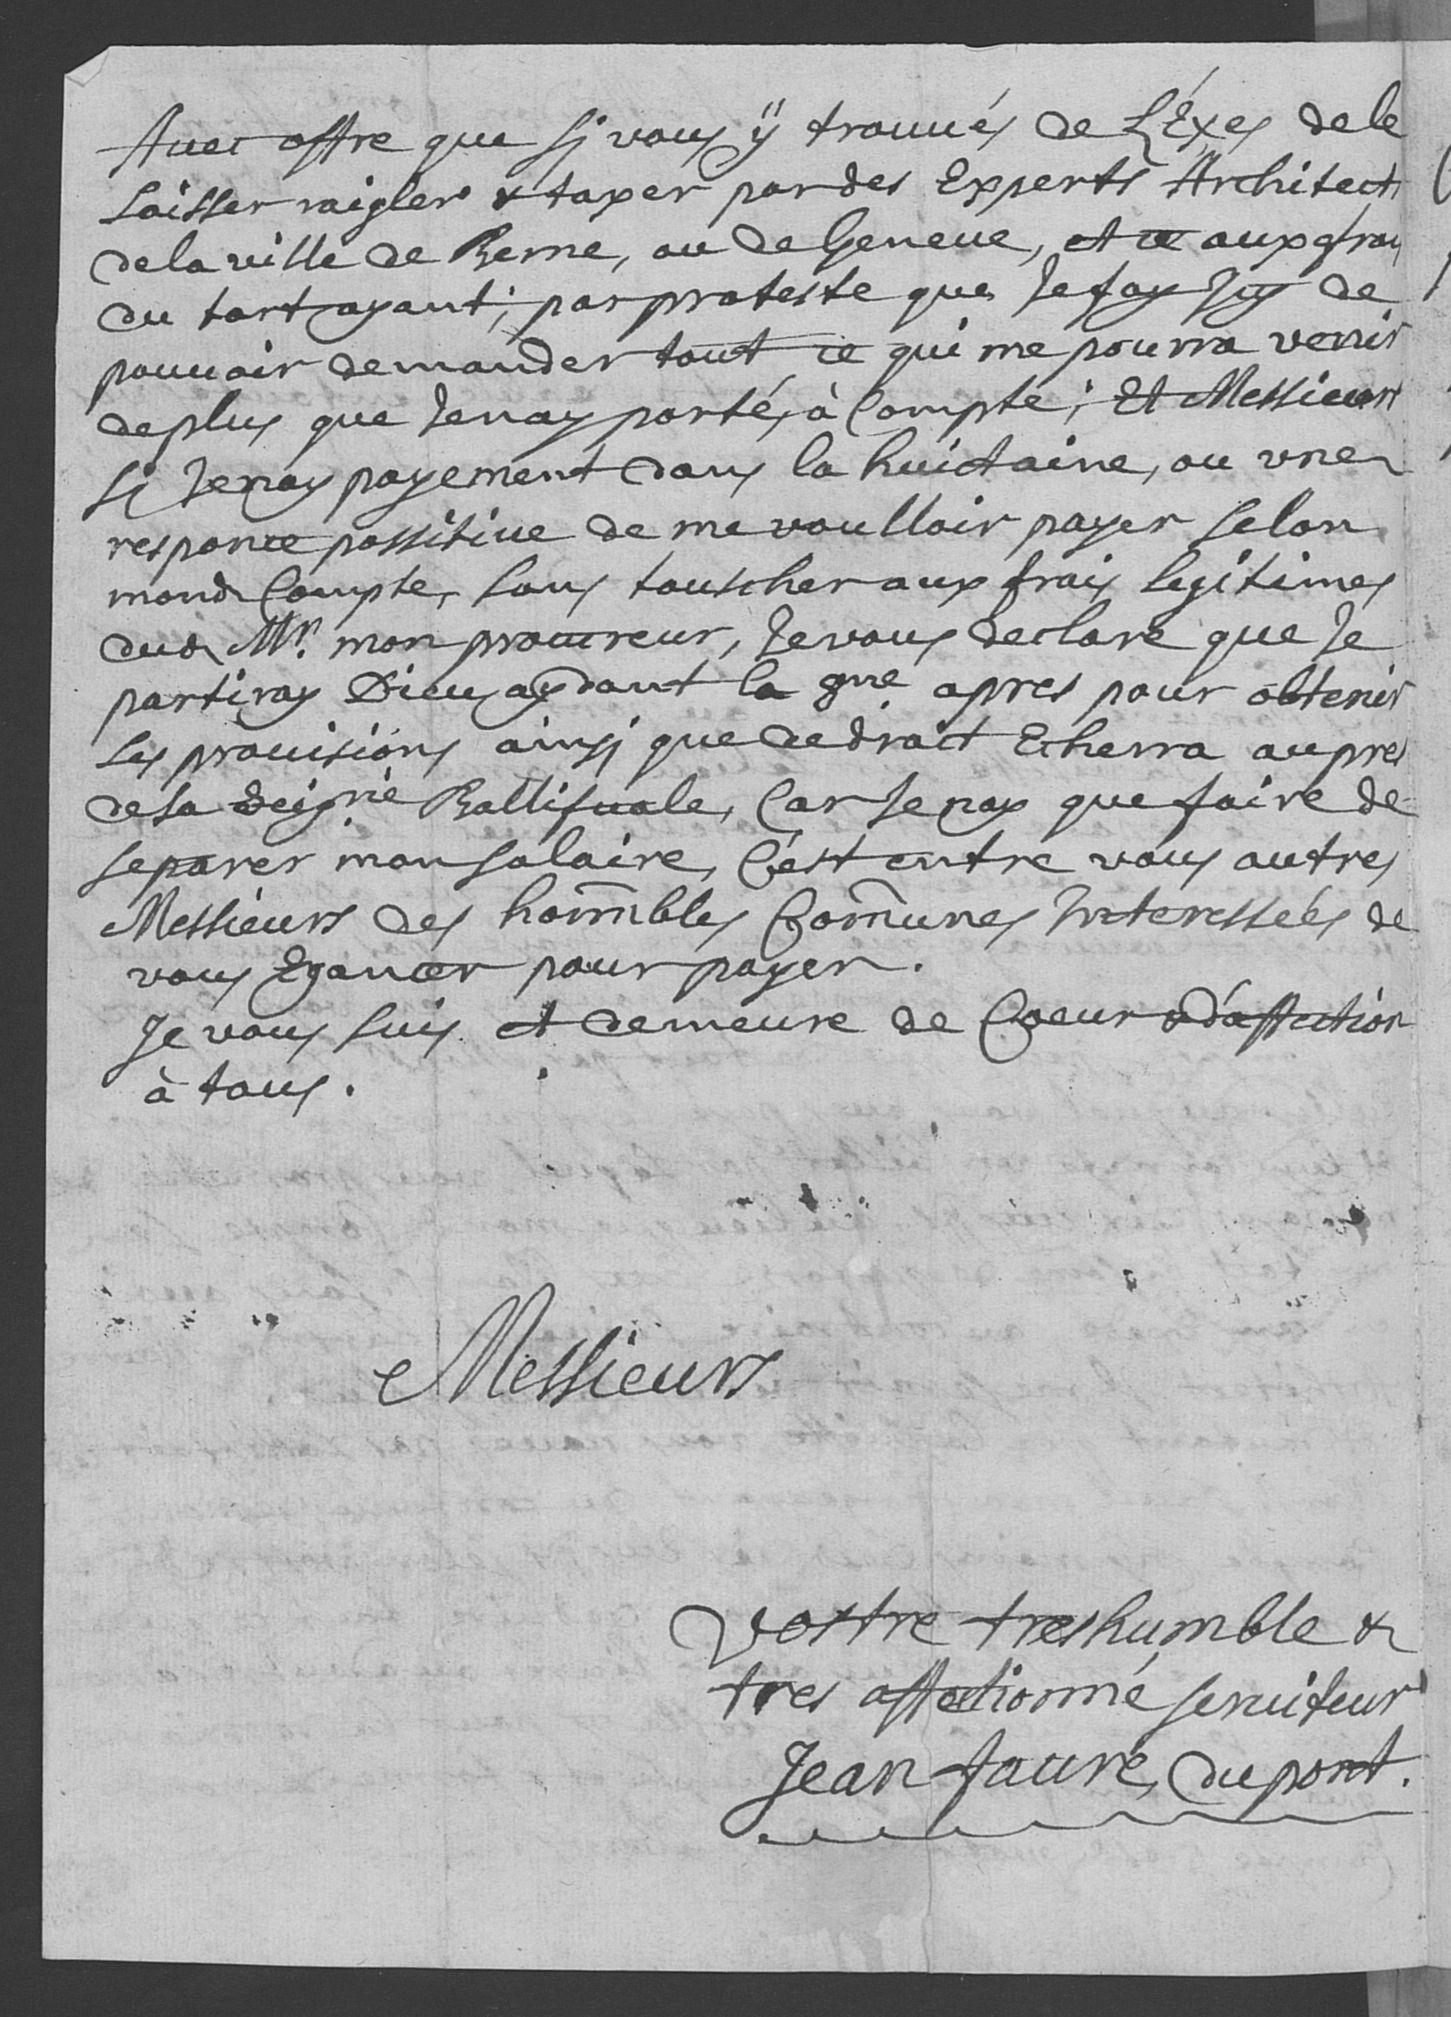 Avec offre que sj vous ÿ trouués de L'Exes de le
laisser raigler & taxer par des Experts Architects
de la ville de Berne, ou de Geneue, et ce aux frais
du tort ayant; par proteste que Je fay Jcy de
pouuoir demander tout ce qui me pourra venir
de plus que Jenay porté, à Compte; Et Messieurs
sj Jenay payement dans la huictaine, ou vne
responce possitiue de me voulloir payer selon
mond Compte, sans touscher aux frais legitimes
dud Mr. mon procureur, Je vous declare que Je
partiray Dieu aydant la gne apres pour obtenir
les prouisions ainsj que de droict Echerra aupres
de sa Seigrie Ballifuale, Car Je nay que faire de
separer mon salaire, C'est entre vous autres
Messieurs des hom̄bles Com̄unes Interessées de
vous Egancer pour payer.
Je vous suis et demeure de Coeur & d'affection
à tous.
Messieurs
Vostre tres humble &
tres affectionné seruiteur
Jean faure, du pont.